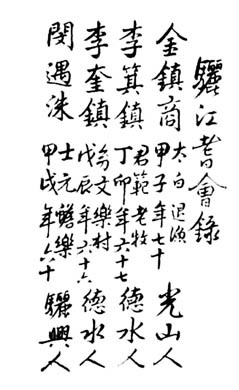 驪江耆會錄
金鎭商 太白 退漁 甲子年七十 光山人
李箕鎭 君範 老牧 丁卯年六十七 德水人
李奎鎭 文 樂村 戊辰年六十六 德水人
閔遇洙 士元 蟾樂 甲戌年六十 驪興人